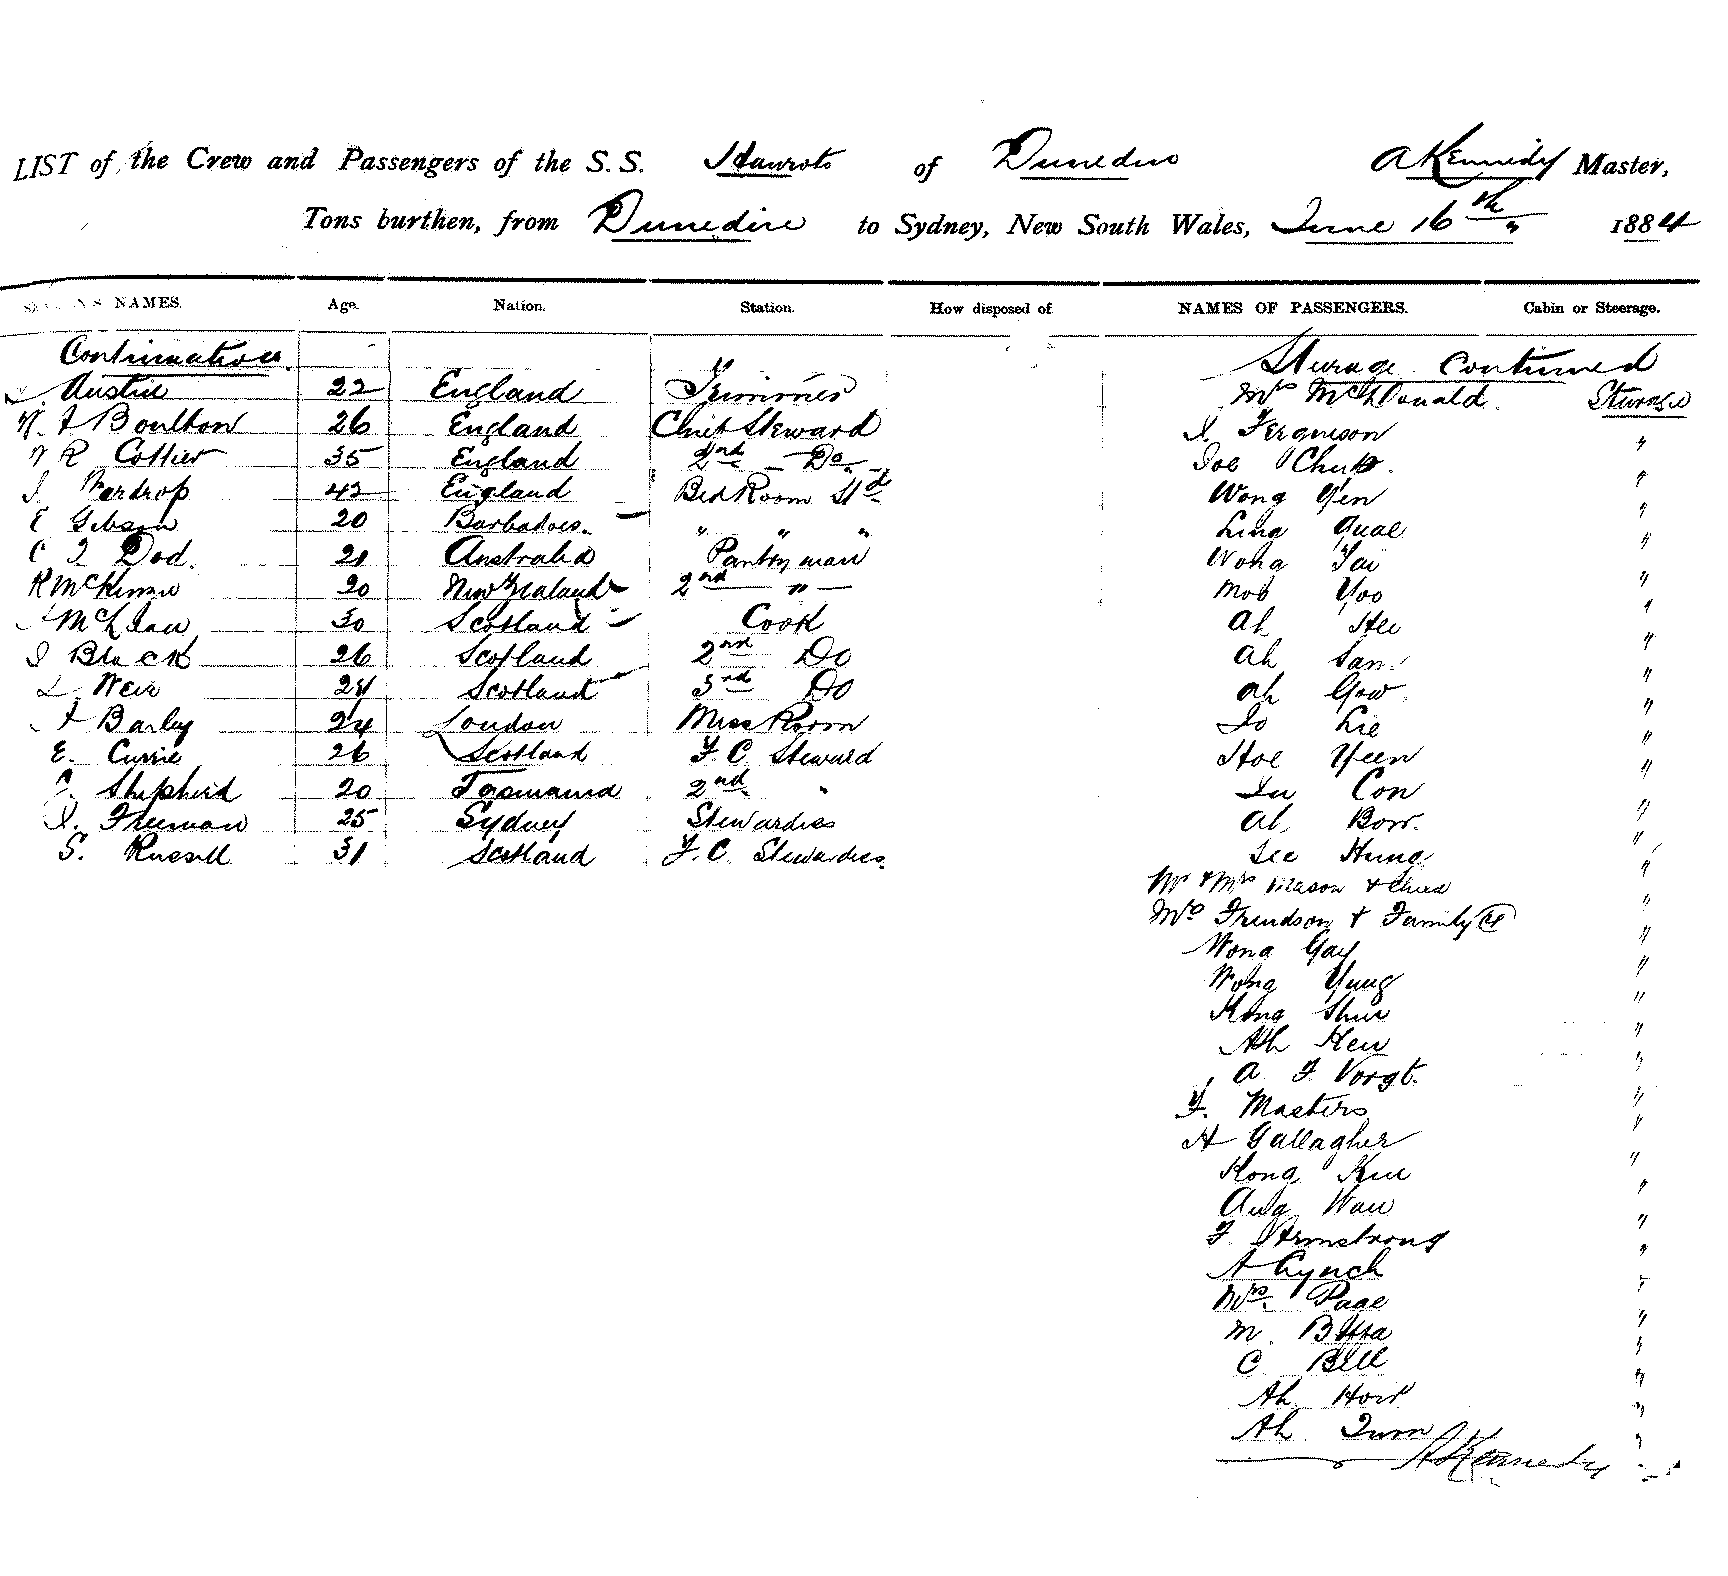 LIST of the Crew and Passengers of the S.S. Hauroto of Dunedin A Kennedy Master,
Tons burthen, from Dunedin to Sydney, New South Wales, June 16th 1884
NAMES. Age. Nation. Station. How disposed of NAMES OF PASSENGERS. Cabin or Steerage.
Continuation Steerage Continued
Austin 22 England Trimmer Mrs McDonald Steerage
Boulton 26 England Chief Steward J Ferguson "
R Collier 35 England 2nd Do Joe Chup "
J. Wardrop 42 England Bed Room Std Wong Yen "
E Gibson 20 Barbadoes " " Ling Qual "
C J Dod. 21 Australia Pantry man Wong Tai "
R McKinnon 20 New Zealand 2nd " Moo Yoo "
McLean 30 Scotland Cook Ah Hee "
J Black 26 Scotland 2nd Do Ah San "
Weir 24 Scotland 3rd Do Ah Gow "
Barley 24 London Mess Room Jo Lie "
E. Currie 26 Scotland F. C Steward Hoe Yeen "
Shepherd 20 Tasmania 2nd " Con "
Freeman 25 Sydney Stewardess Ah Bow "
S. Russell 31 Scotland F. C. Stewardess See Hung "
Mr & Mrs Mason & Child "
Mrs & Family "
Wong Gay "
Wong Yung "
Kong Shue "
Ah Kew "
A F Vorgt. "
F. Masters "
H Gallagher "
Kong Kee "
Ang Wau "
F. Armstrong "
A Lynch "
Mrs. Page "
M. "
C Bell "
Ah "
Ah "
A Kennedy